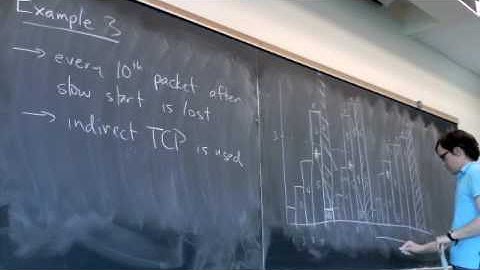 Example 3
→ every 10th packet after
slow start is lost
→ indirect TCP is used